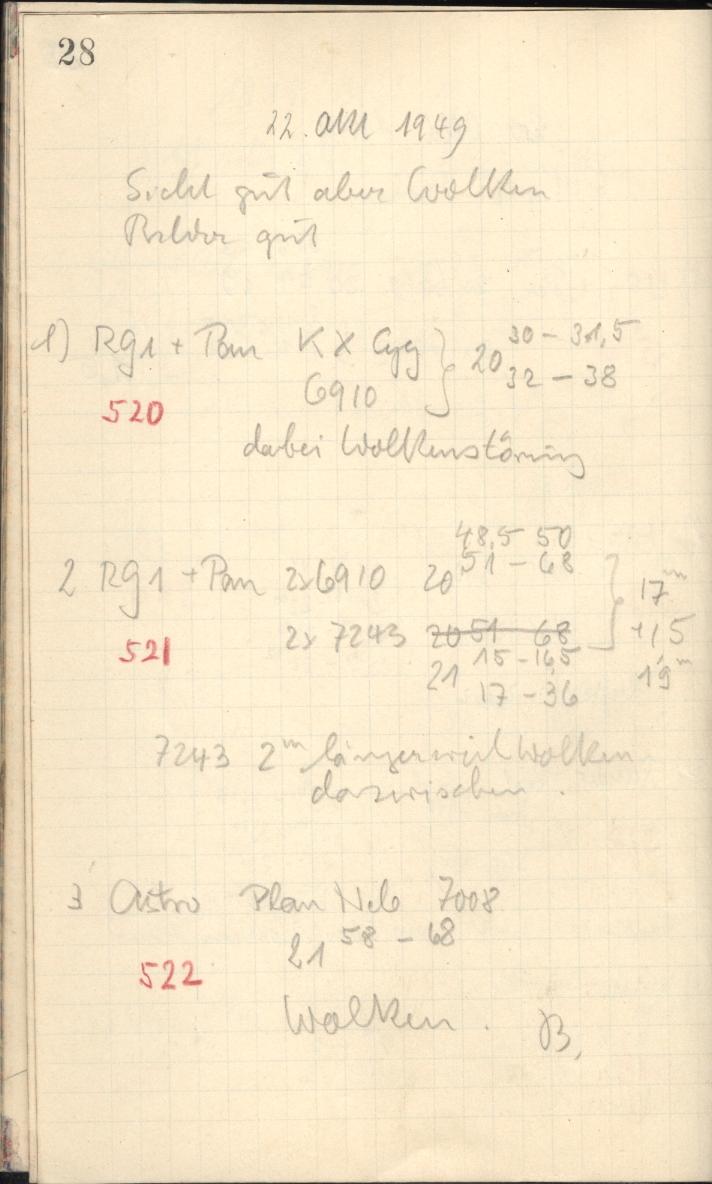 28
22. Okt 1949
Sicht gut aber Wolken
Bilder gut
1) Rg1 + Pan KX Cyg } 20 30 – 31,5
6910 32 – 38
520
dabei Wolkenstörung
48,5 50
2 RG1 + Pan 2x6910 20 51 – 68 } 17m
521 2x 7243 20 51 68 +1,5
21 15 – 16,5 19m
17 – 36
7243 2m länger weil Wolken
dazwischen.
3 Astro Plan Neb 7008
21 58 – 68
522
Wolken. B,